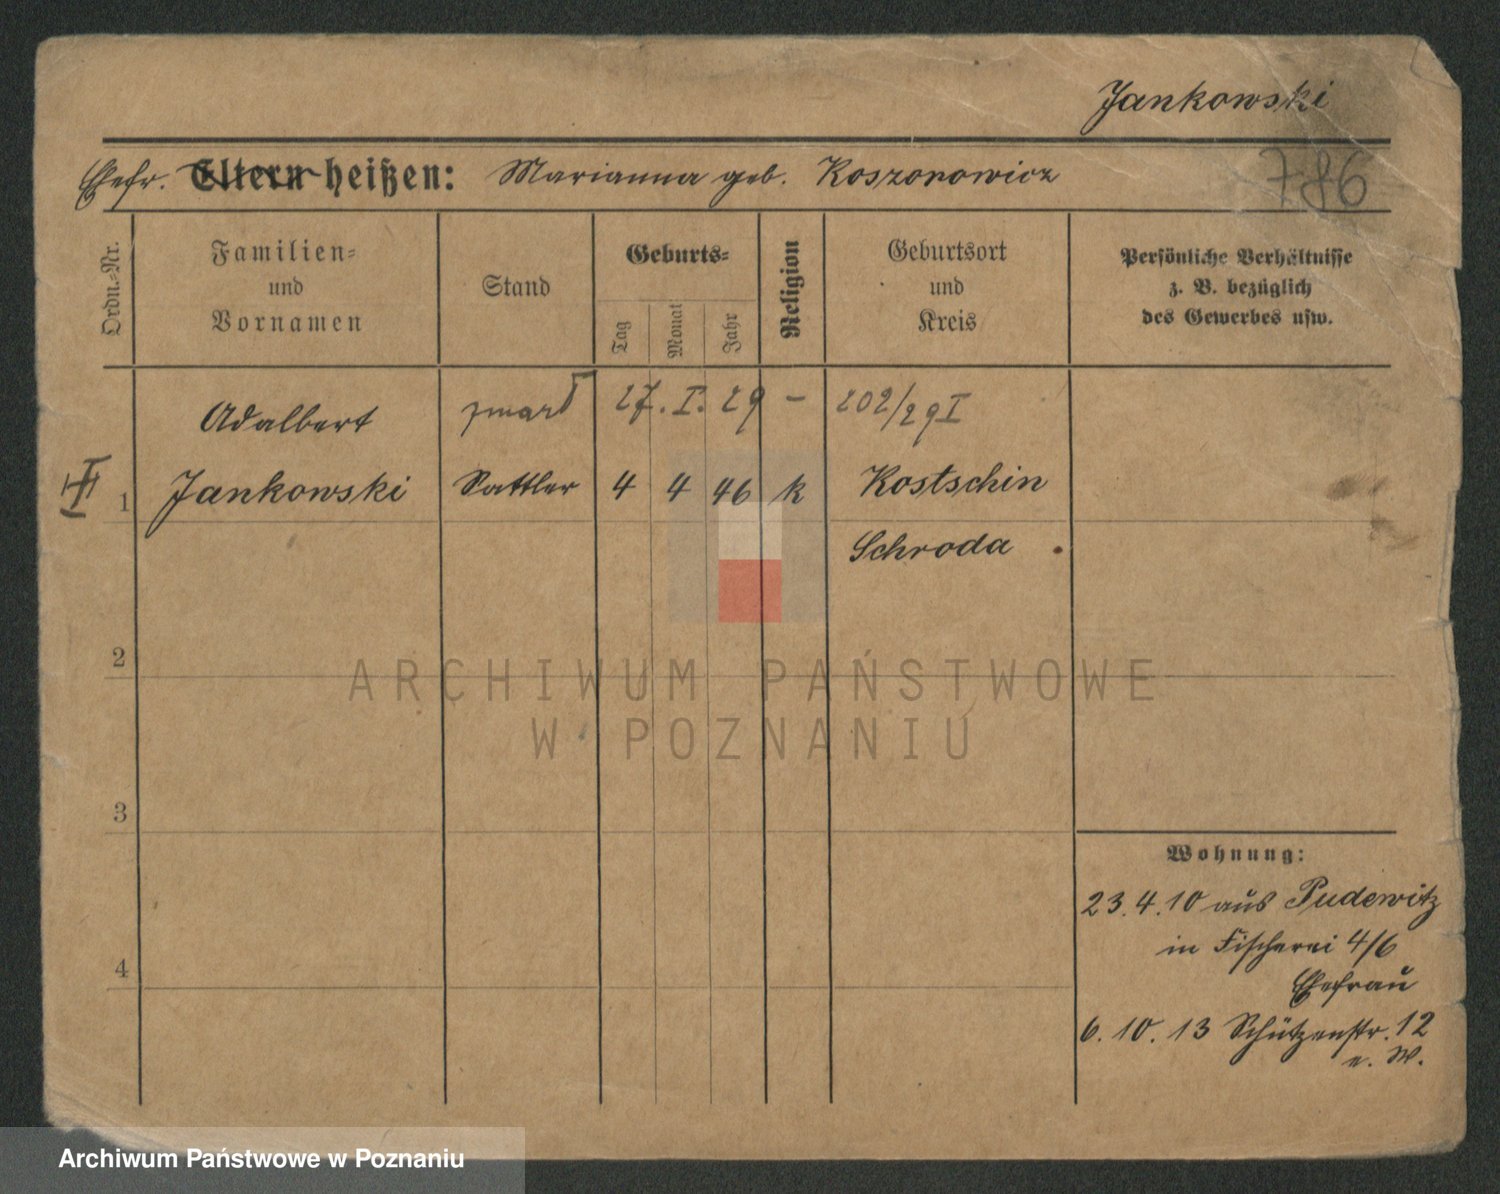 Jankowski
786
Ehefr. Eltern heißen: Marianna geb. Koszorowicz
Ordn.-Nr.
Familien-
und
Vornamen
Stand
Geburts-
Tag
Monat
Jahr
Religion
Geburtsort
und
Kreis
Persönliche Verhältnisse
z. B. bezüglich
des Gewerbes usw.
Adalbert zmarł 27. I. 29 - 202/29 I
1 Jankowski Sattler 4 4 46 k Kostschin
Schroda
2
ARCHIWUM PAŃSTWOWE
W POZNANIU
3
Wohnung:
23.4.10 aus Pudewitz
in Fischerei 4/6
4
Ehefrau
6.10.13 Schützenstr. 12
e. W.
Archiwum Państwowe w Poznaniu